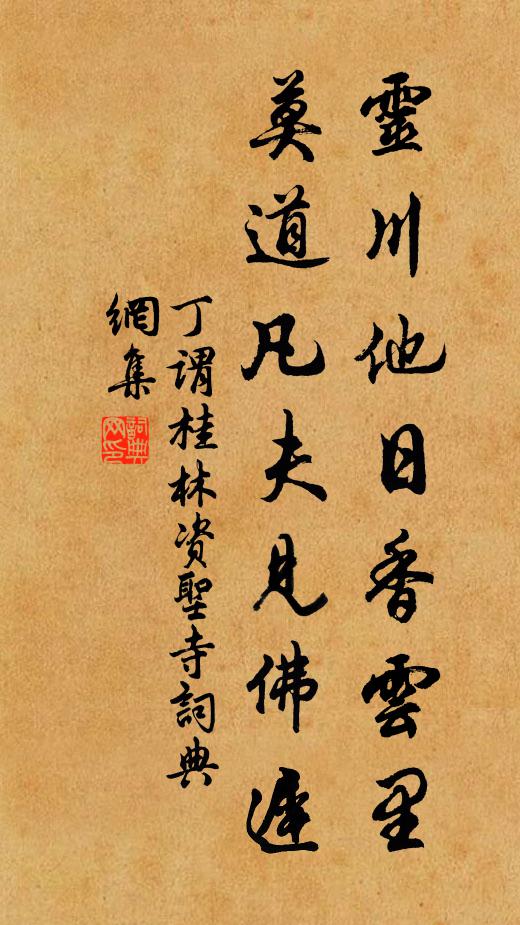 靈川他日香雲里
莫道凡夫見佛遲
丁謂桂林资聖寺詞典
網集
詞典网印